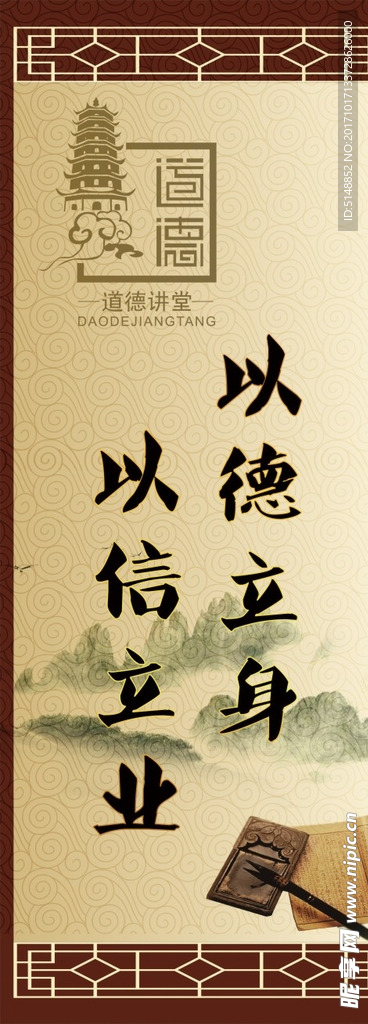 道德
道德讲堂
DAODEJIANGTANG
以德立身
以信立业
ID:5148852 NO:20171017133728626000
昵享网 www.nipic.cn